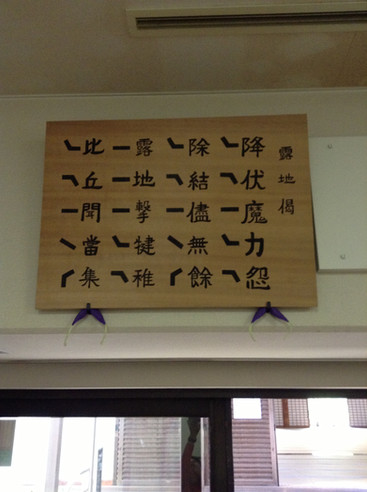 露地偈
降伏魔力怨
除結儘無餘
露地撃犍稚
比丘聞當集